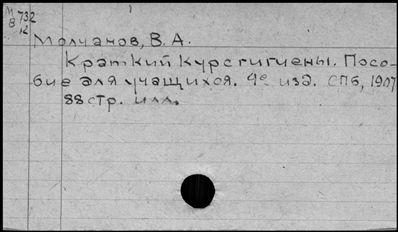 М 732
В 12
Молчанов, В. А.
Краткий Курс гигиены. Посо-
бие для учащихся. 9е изд. СПб, 1907
88 стр. илл.